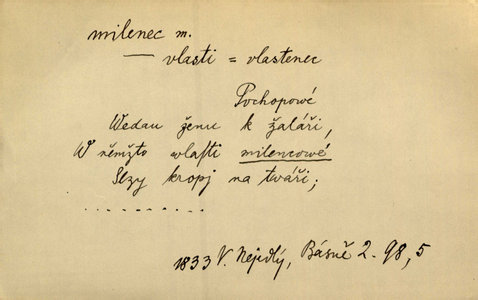 milenec m.
— vlasti = vlastenec
Pochopowé
Wedau ženu k žaláři,
W němžto wlasti milencowé
Slzy kropj na twáři;
. . . . . . . .
1833 V. Nejedlý, Básně 2. 98, 5